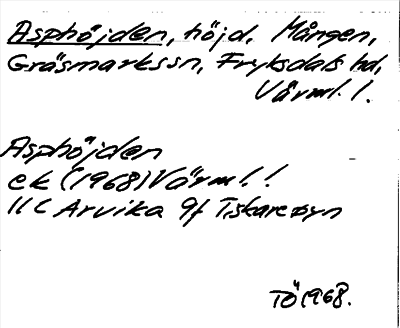 Asphöjden, höjd. Mången,
Gräsmarkssn, Fryksdals hd,
Värml. l.
Asphöjden
ek (1968) Värml. l.
11C Arvika 9f Tiskaresyn
TÖ 1968.